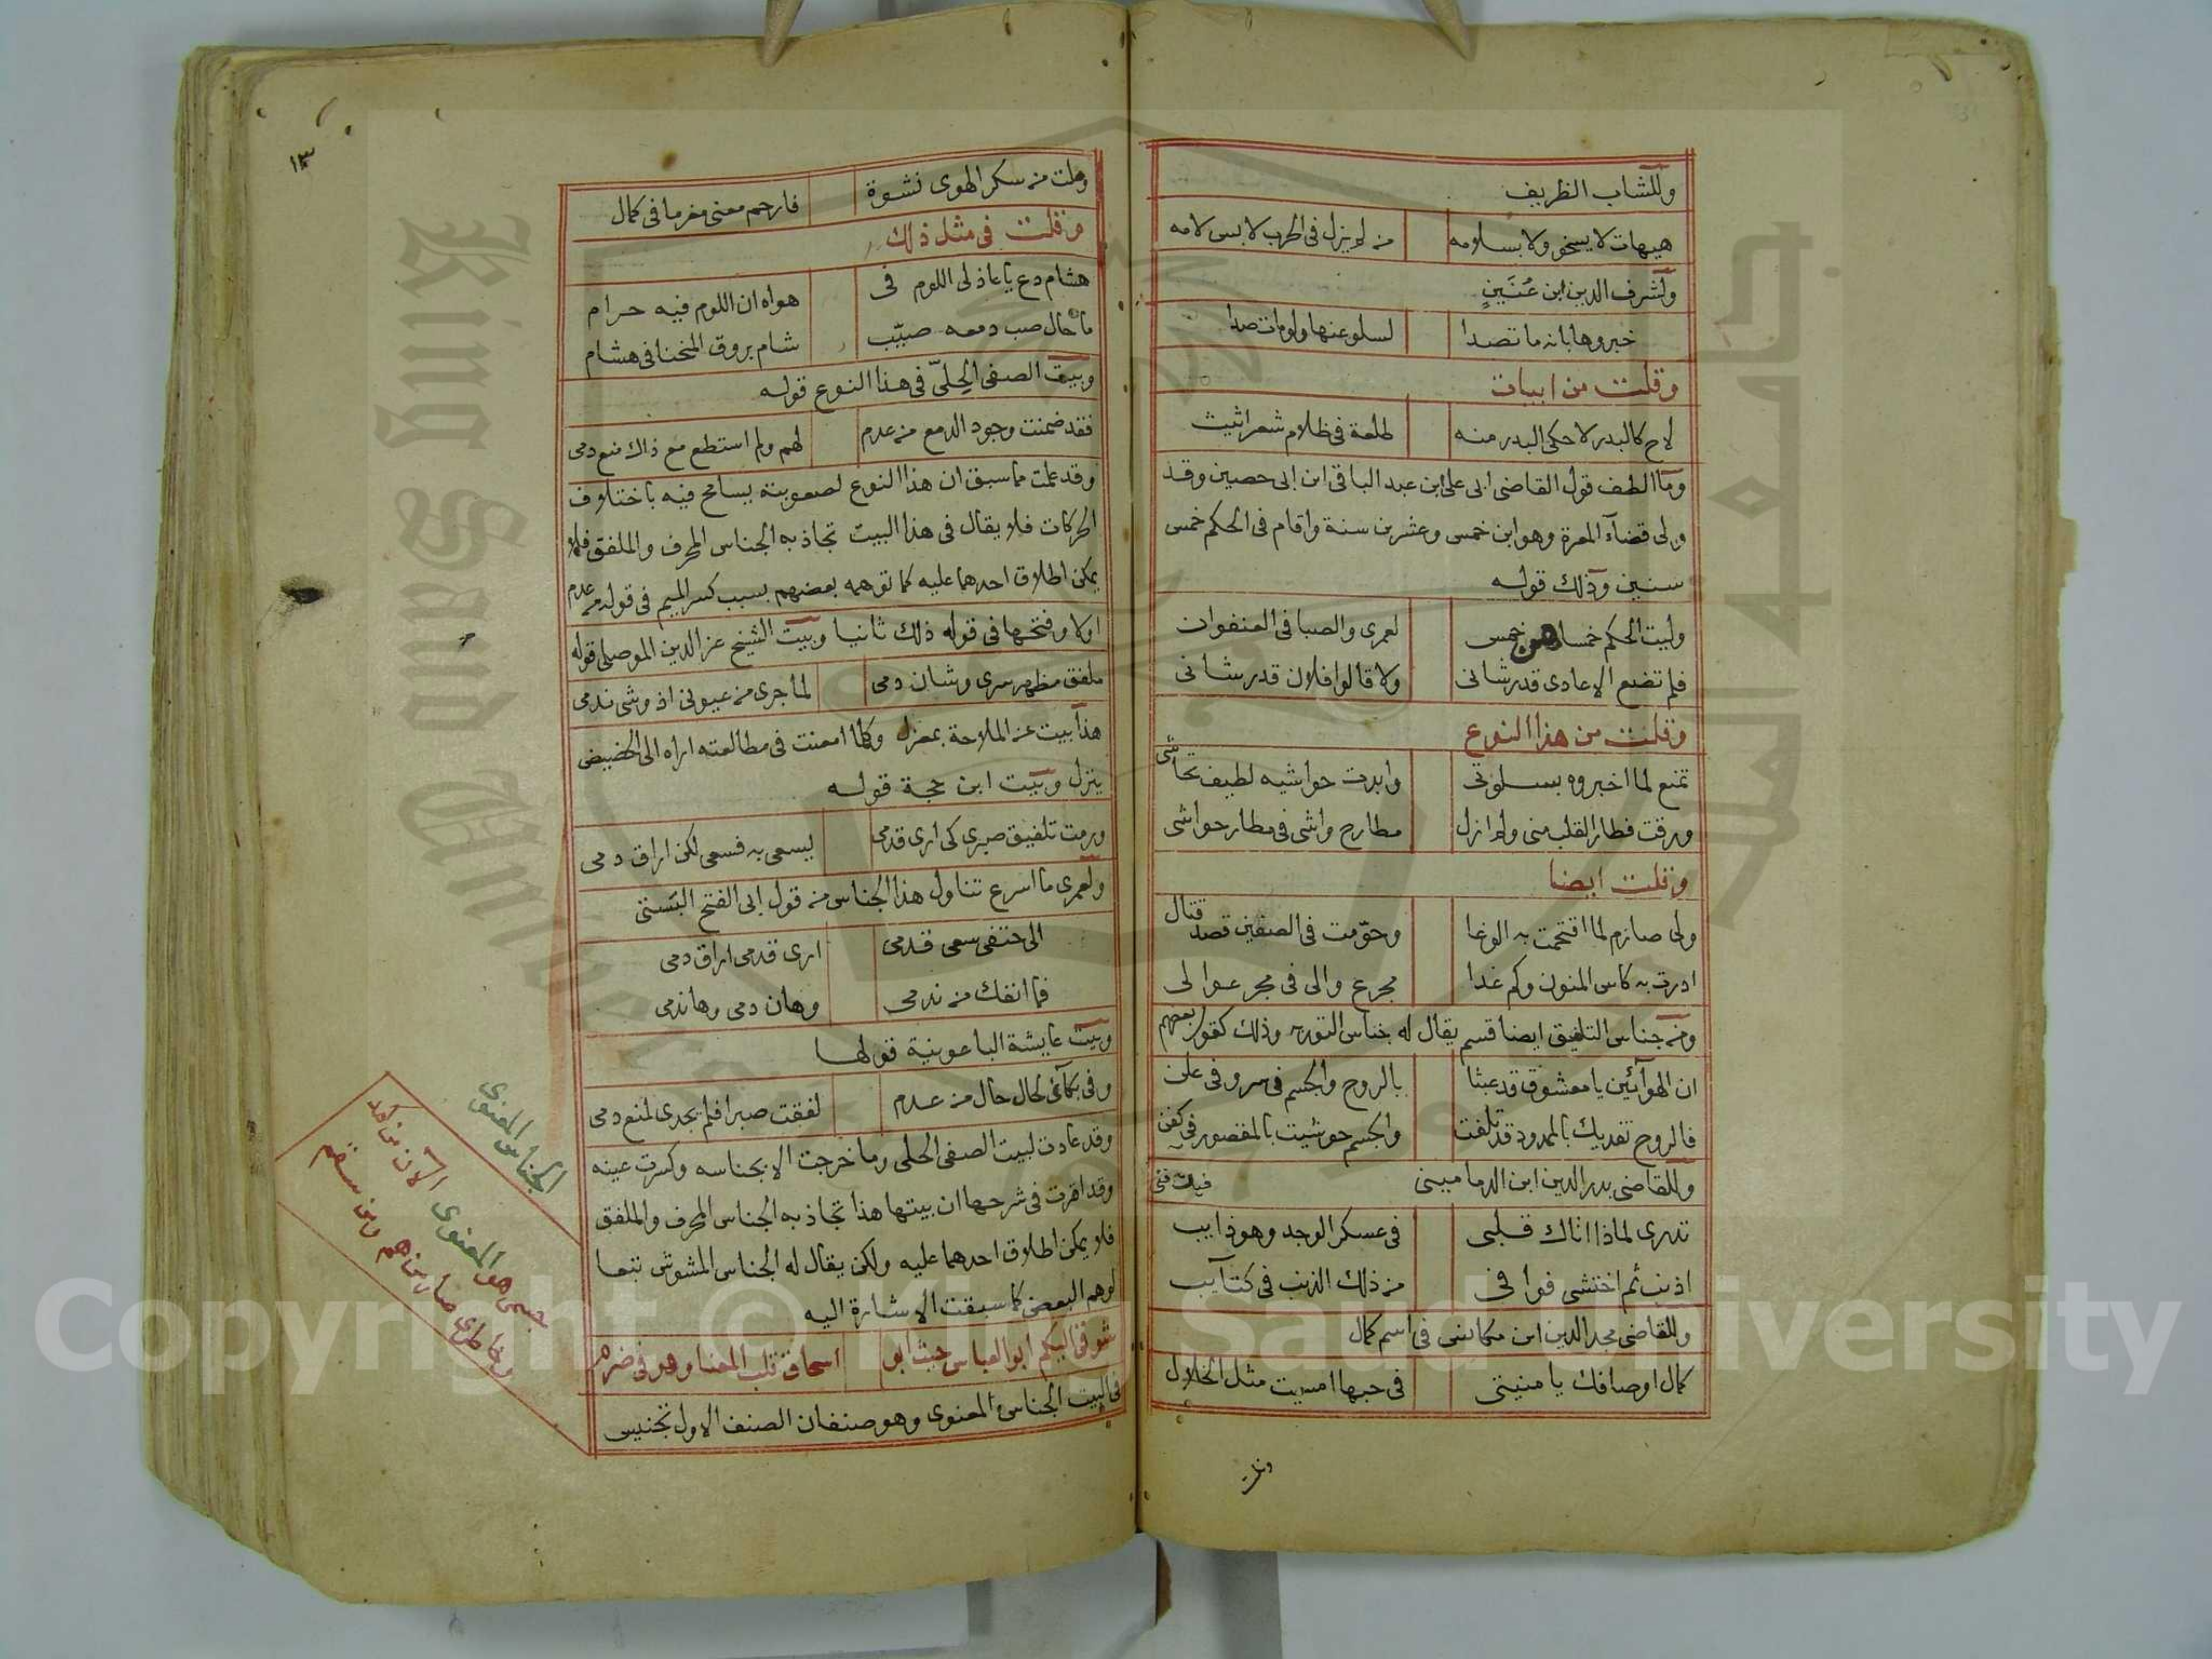 وللشاب الظريف
هيهات لا يسخو ولا بسلامه من لم يزل في الحرب لابس لامه
ولشرف الدين ابن عنين
خبروها بانه ما تصدا لسلو عنها ولو مات صدا
وقلت من ابيات
لاح كالبدر لا حكى البدر منه طلعة في ظلام شعر اثيث
وما الطف قول القاضي ابي علي ابن عبد الباقي ابن ابي حصين وقد
ولي قضآء المعرة وهو ابن خمس وعشرين سنة واقام في الحكم خمس
سنين وذلك قوله
وليت الحكم خمسا هن خمس لعمري والصبا في العنفوان
فلم تضع الاعادي قدر شاني ولا قالوا فلان قد رشاني
وقلت من هذا النوع
تمنع لما اخبروه بسلوتي وابدت حواشيه لطيف تحاشي
ورقت فطار القلب مني ولم ازل مطارح واشي في مطار حواشي
وقلت ايضا
ولي صارم لما اقتحمت به الوغا وحوّمت في الصفين قصد قتال
ادرت به كاس المنون وكم غدا مجرع والي في مجر عوالي
ومن جناس التلفيق ايضا قسم يقال له جناس التورية وذلك كقول بعضهم
ان الهوآئين يا معشوق قد عبثا بالروح والجسم في سر وفي علن
فالروح تفديك بالممدود قد تلفت والجسم حوشيت بالمقصور في كفن
وللقاضي بدر الدين ابن الدماميني
تدري لماذا اتاك قلبي في عسكر الوجد وهو ذايب
اذنب ثم اختشى فوافى من ذلك الذنب في كتآيب
وللقاضي مجد الدين ابن مكانس في اسم كمال
كمال اوصافك يا منيتي في حبها امسيت مثل الخلال
وملت
١٣
وملت من سكر الهوى نشوة فارحم معنى مغرما في كمال
وقلت في مثل ذلك
هشام دع يا عاذلي اللوم في هواه ان اللوم فيه حرام
ما حال صب دمعه صيّب شام بروق المنحنا في هشام
وبيت الصفي الحليّ في هذا النوع قوله
فقد ضمنت وجود الدمع من عدم لهم ولم استطع مع ذاك منع دمي
وقد علمت مما سبق ان هذا النوع لصعوبته يسامح فيه باختلاف
الحركات فلا يقال في هذا البيت تجاذبه الجناس المحرف والملفق فلا
يمكن اطلاق احدهما عليه كما توهمه بعضهم بسبب كسر الميم في قوله من عدم
اولا وفتحها في قوله ذلك ثانيا وبيت الشيخ عز الدين الموصلي قوله
ملفق مظهر سري وشان دمي لما جرى من عيوني اذ وشى ندمي
هذا بيت عن الملاحة بمعزل وكلما امعنت في مطالعته اراه الى الحضيض
ينزل وبيت ابن حجة قوله
ورمت تلفيق صبري كي ارى قدمي يسعى به فسعى لكن اراق دمي
ولعمري ما اسرع تناول هذا الجناس من قول ابي الفتح البستي
الى حتفي سعى قدمي ارى قدمي اراق دمي
فما انفك من ندمي وهان دمي وها ندمي
وبيت عايشة الباعونية قولها
وفي بكآئي لحال حال من عدم لفقت صبرا فلم يجدي لمنع دمي
وقد عادت لبيت الصفي الحلي وما خرجت الا بجناسه وكسرت عينه
وقد اقرت في شرحها ان بيتها هذا تجاذبه الجناس المحرف والملفق
فلا يمكن اطلاق احدهما عليه ولكن يقال له الجناس المشوش تبعا
لوهم البعض كما سبقت الاشارة اليه
شوقي اليكم ابو العباس حيث ابو اسحاق قلب المعنا وهو في ضرم
في البيت الجناس المعنوى وهو صنفان الصنف الاول تجنيس
الجناس المعنوى
جسمي هو المعنوى الآن من كمد
وخاطري صار من هم ومن سقم
Copyright © King Saud University
King Saud University
جامعة الملك سعود